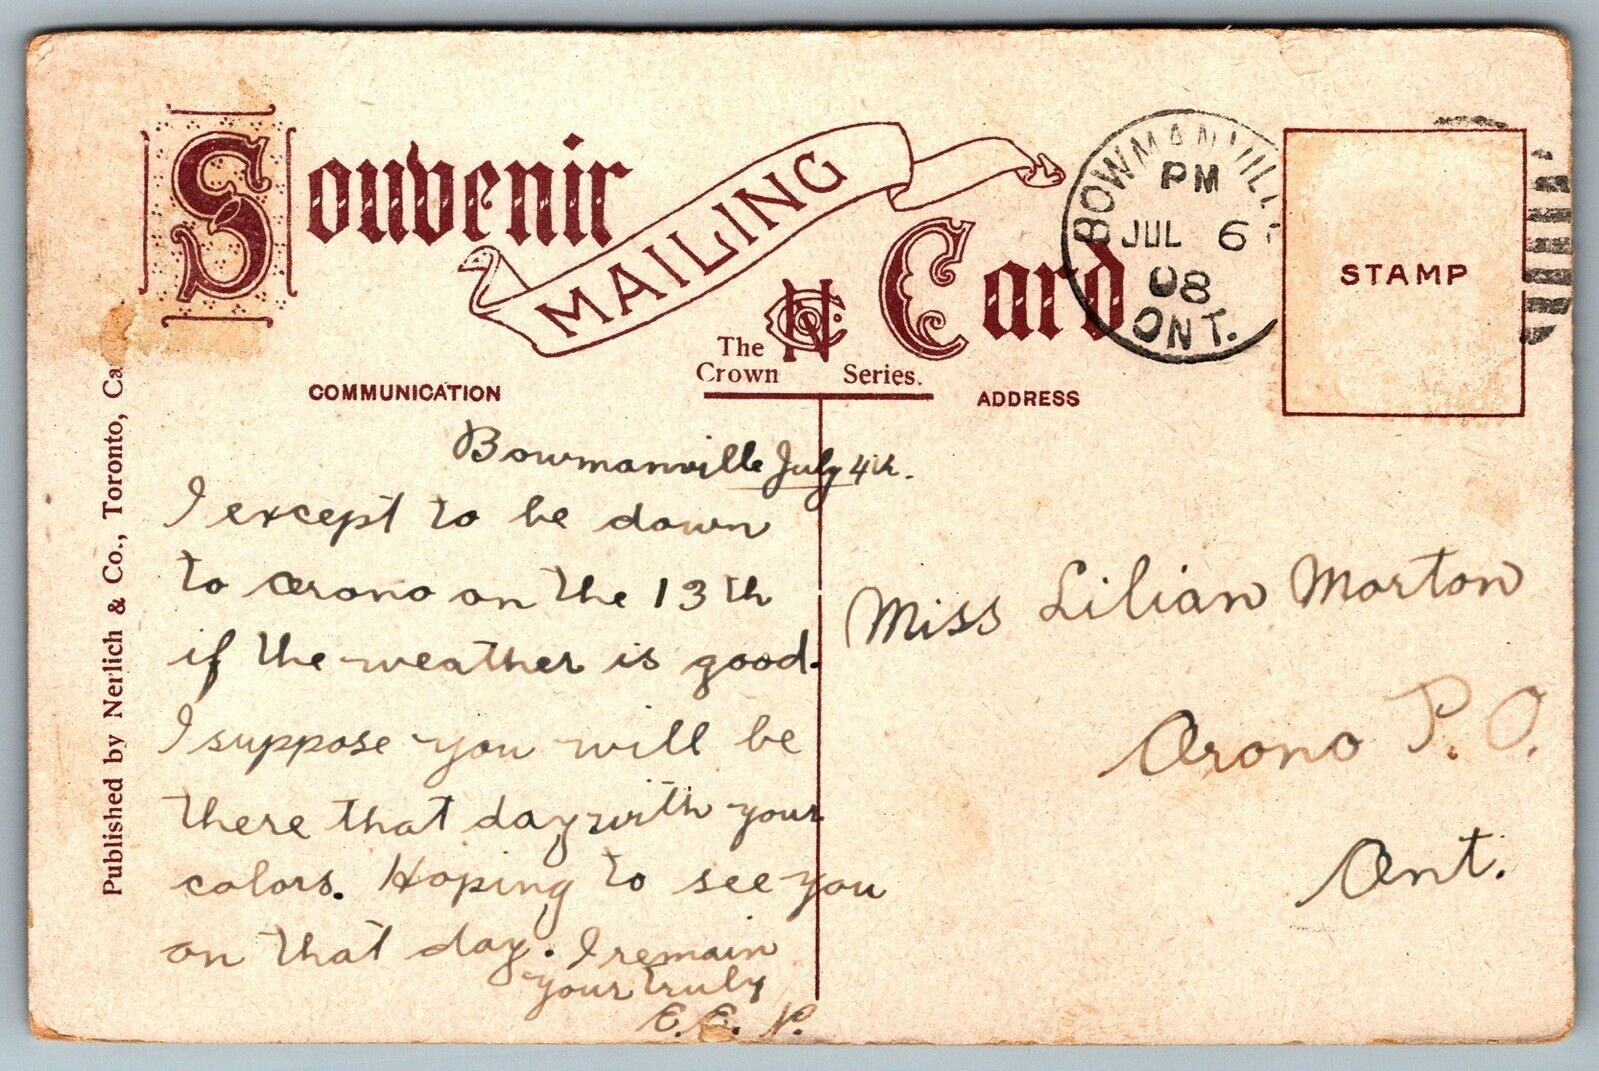 Souvenir
MAILING
Card
The
Crown Series.
COMMUNICATION
ADDRESS
BOWMANVILL
PM
JUL 6
08
ONT.
STAMP
Published by Nerlich & Co., Toronto, Ca
Bowmanville July 4th.
I except to be down
to Orono on the 13th
if the weather is good.
I suppose you will be
there that day with your
colors. Hoping to see you
on that day. I remain
your truly
E. E. P.
Miss Lilian Morton
Orono P.O.
Ont.